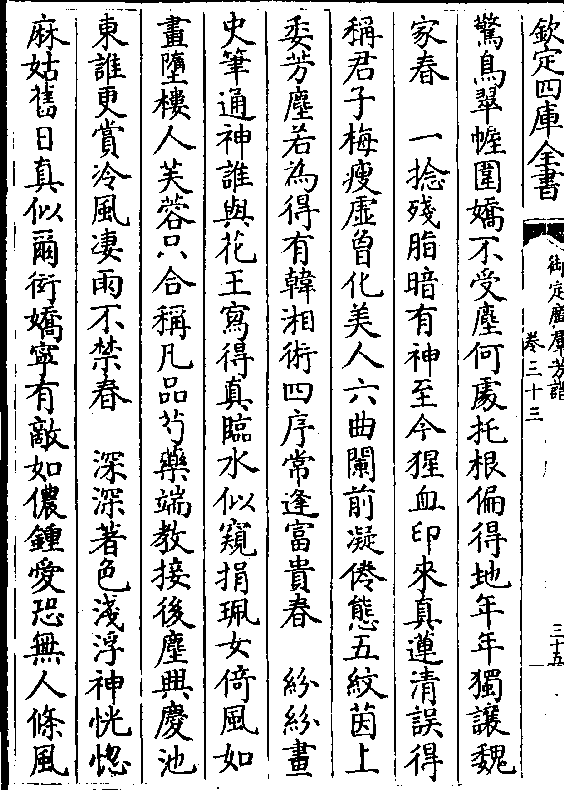 欽定四庫全書
御定廣羣芳譜
卷三十三
三十五
驚鳥翠幄圍嬌不受塵何處托根偏得地年年獨讓魏
家春　一捻殘脂暗有神至今猩血印來真蓮清誤得
稱君子梅瘦虛曾化美人六曲闌前凝倦態五紋茵上
委芳塵若為得有韓湘術四序常逢富貴春　紛紛畫
史筆通神誰與花王寫得真臨水似窺捐珮女倚風如
畫墮樓人芙蓉只合稱凡品芍藥端教接後塵興慶池
東誰更賞冷風凄雨不禁春　深深著色淺浮神恍惚
麻姑舊日真似爾衒嬌寧有敵如儂鍾愛恐無人條風